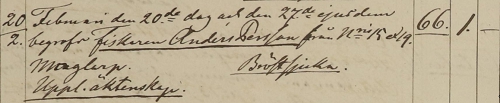 20 Februari den 20de dag och den 27de ejusdem 66. 1. —
2. begrofs fiskaren Anders Persson från No 15 &
Bröstsjuka.
Uppl. äktenskap.